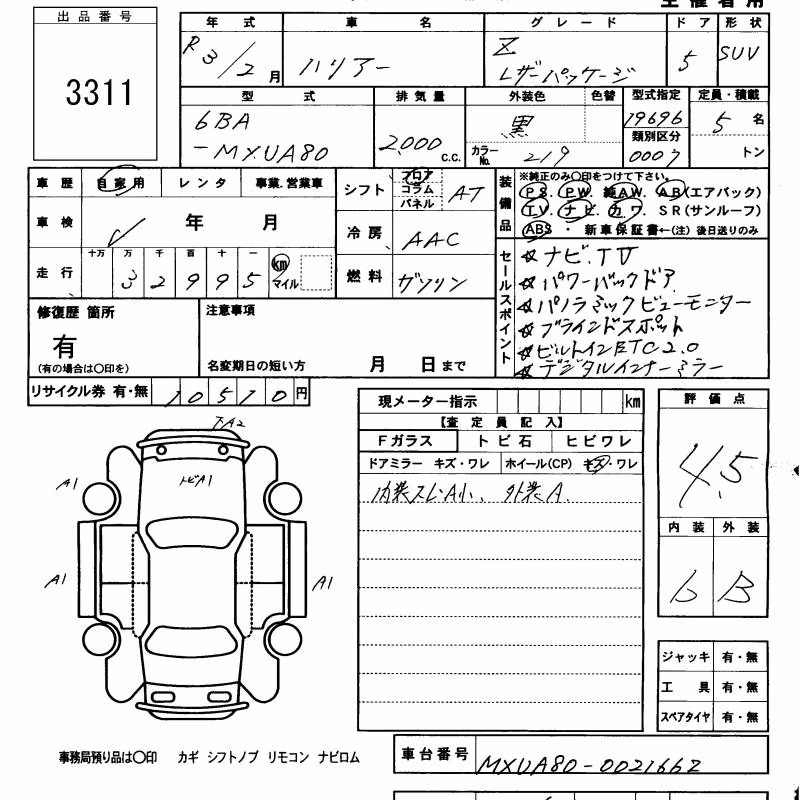 主催者用
出品番号
3311
年式 車名 グレード ドア 形状
R3/2月 ハリアー Z レザーパッケージ 5 SUV
型式 排気量 外装色 色替 型式指定 定員・積載
6BA-MXUA80 2,000 C.C. 黒 19696 5名
カラーNo. 219 類別区分 0007 トン
車歴 自家用 レンタ 事業.営業車
車検 年 月
走行 十万 万 千 百 十 一
32995 km マイル
シフト フロア コラム パネル AT
冷房 AAC
燃料 ガソリン
装備品 ※純正のみ〇印をつけて下さい。
PS. PW. 純AW. AB(エアバック)
TV. ナビ. カワ. SR(サンルーフ)
ABS ・ 新車保証書←(注) 後日送りのみ
セールスポイント
☆ナビ.TV
☆パワーバックドア
☆パノラミックビューモニター
☆ブラインドスポット
☆ビルトインETC2.0
☆デジタルインナーミラー
修復歴 箇所
有
(有の場合は〇印を)
注意事項
名変期日の短い方 月 日まで
リサイクル券 有・無 10510円
現メーター指示 km
【査定員記入】
Fガラス トビ石 ヒビワレ
ドアミラー キズ・ワレ ホイール(CP) キズ・ワレ
内装スレA小、外装A.
評価点
4.5
内装 外装
b B
下A2
トビA1
A1
A1
A1
ジャッキ 有・無
工具 有・無
スペアタイヤ 有・無
事務局預り品は〇印 カギ シフトノブ リモコン ナビロム
車台番号 MXUA80-0021662